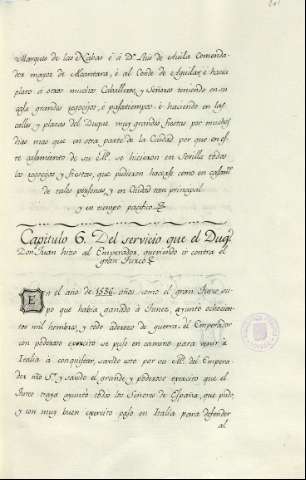 Marques de las Nabas é á Dn. Luis de Auila Comenda-
dor mayor de Alcantara, é al Conde de Aguilar é hacia
plato á otros muchos Caballeros, y Señores teniendo en su
sala grandes regocijos, é pasatiempos, é haciendo en las
calles y plazas del Duque muy grandes fiestas por muchos
dias mas que en otra parte de la Ciudad por que en es-
te casamiento de su M. se hicieron en Sevilla todos
los regocijos y fiestas, que pudieron hacerse como en casami
de tales personas, y en Ciudad tan principal
y en tiempo pacifico
Capitulo 6. Del servicio que el Duq.
Don Juan hizo al Emperador, queriendo ir contra el
gran Turco
En el año de 1536 años como el gran Turco su-
po que habia ganado á Tunez, ayunto ochocien-
tos mil hombres, y todo aderezo de guerra, el Emperador
con poderoso exercito se puso en camino para venir á
Italia á conquistar, savido esto por su M. del Empera-
dor nro Sr. y savido el grande y poderoso exercito que el
Turco traya ayunto todos los Señores de España, que pudo,
y con muy buen exercito paso en Italia para defender
al